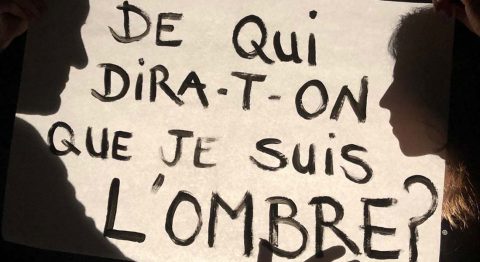 DE QUi
DiRA-T-ON
QUE JE SUiS
L'OMBRE?